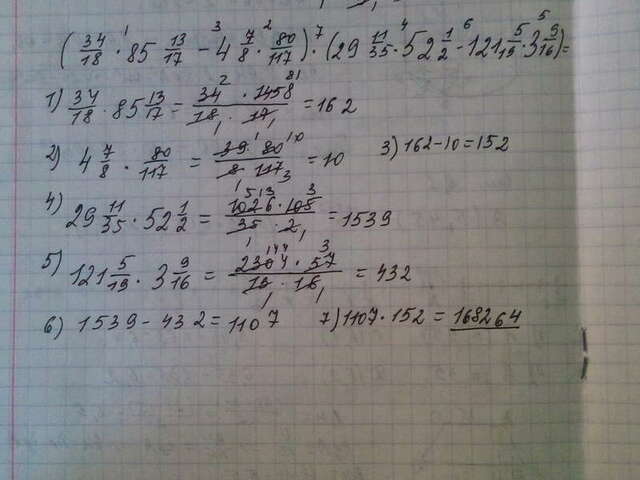 (34/18 · 85 13/17 − 4 7/8 · 80/117) · (29 11/35 · 52 1/2 − 121 5/19 · 3 9/16) =
1) 34/18 · 85 13/17 = 34 · 1458 / 18 · 17 = 162
2) 4 7/8 · 80/117 = 39 · 80 / 8 · 117 = 10
3) 162 − 10 = 152
4) 29 11/35 · 52 1/2 = 1026 · 105 / 35 · 2 = 1539
5) 121 5/19 · 3 9/16 = 2304 · 57 / 19 · 16 = 432
6) 1539 − 432 = 1107
7) 1107 · 152 = 168264